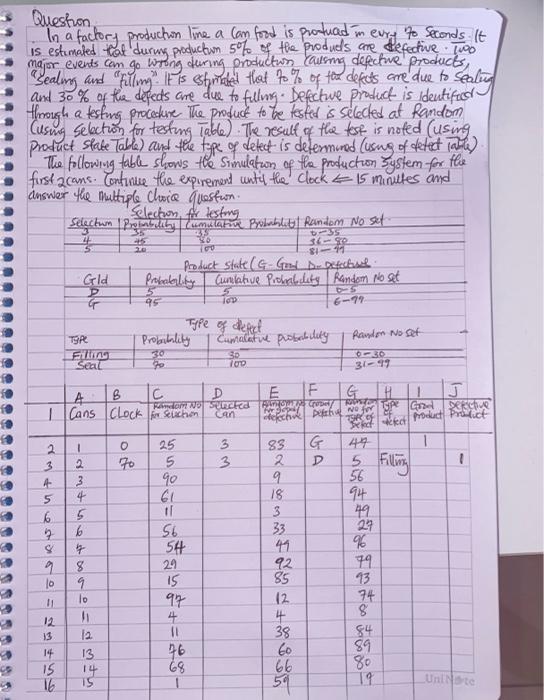 Question
In a factory production line a Can food is produced in every 70 Seconds. It
is estimated that during production 5% of the products are defective. Two
major events can go wrong during production causing defective products,
"Sealing and "filling". It is estimated that 70% of the defects are due to Sealing
and 30% of the defects are due to filling. Defective product is Identified
through a testing procedure The product to be tested is selected at Random
(using Selection for testing table). The result of the test is noted (using
Product State Table) and the type of defect is determined (using of defect table)
The following table shows the Simulation of the production System for the
first 2 cans. Continue the expreiment until the Clock <= 15 minutes and
answer the multiple Choice question.
Selection for testing
Selection Probability Cumulative Probability Random No Set
3 35 35 0-35
4 45 80 36-80
5 20 100 81-99
Product State (G-Good D-Defective
G/d Probability Cumlative Probability Random No Set
D 5 5 0-5
G 95 100 6-99
Type of defect
Type Probability Cumalative probability Random No Set
Filling 30 30 0-30
Seal 70 100 31-99
A B C D E F G H I J
1 Cans Clock Random No for Selection Selected Can Random No for good/defective Good/Defective Random No for Type of Defect Type of defect Good product Defective Product
2 1 0 25 3 83 G 44 1
3 2 70 5 3 2 D 5 Filling 1
4 3 90 9 56
5 4 61 18 94
6 5 11 3 49
7 6 56 33 27
8 7 54 49 96
9 8 29 92 79
10 9 15 85 93
11 10 97 12 74
12 11 4 4 8
13 12 11 38 84
14 13 76 60 89
15 14 68 66 80
16 15 1 59 19
UniNote